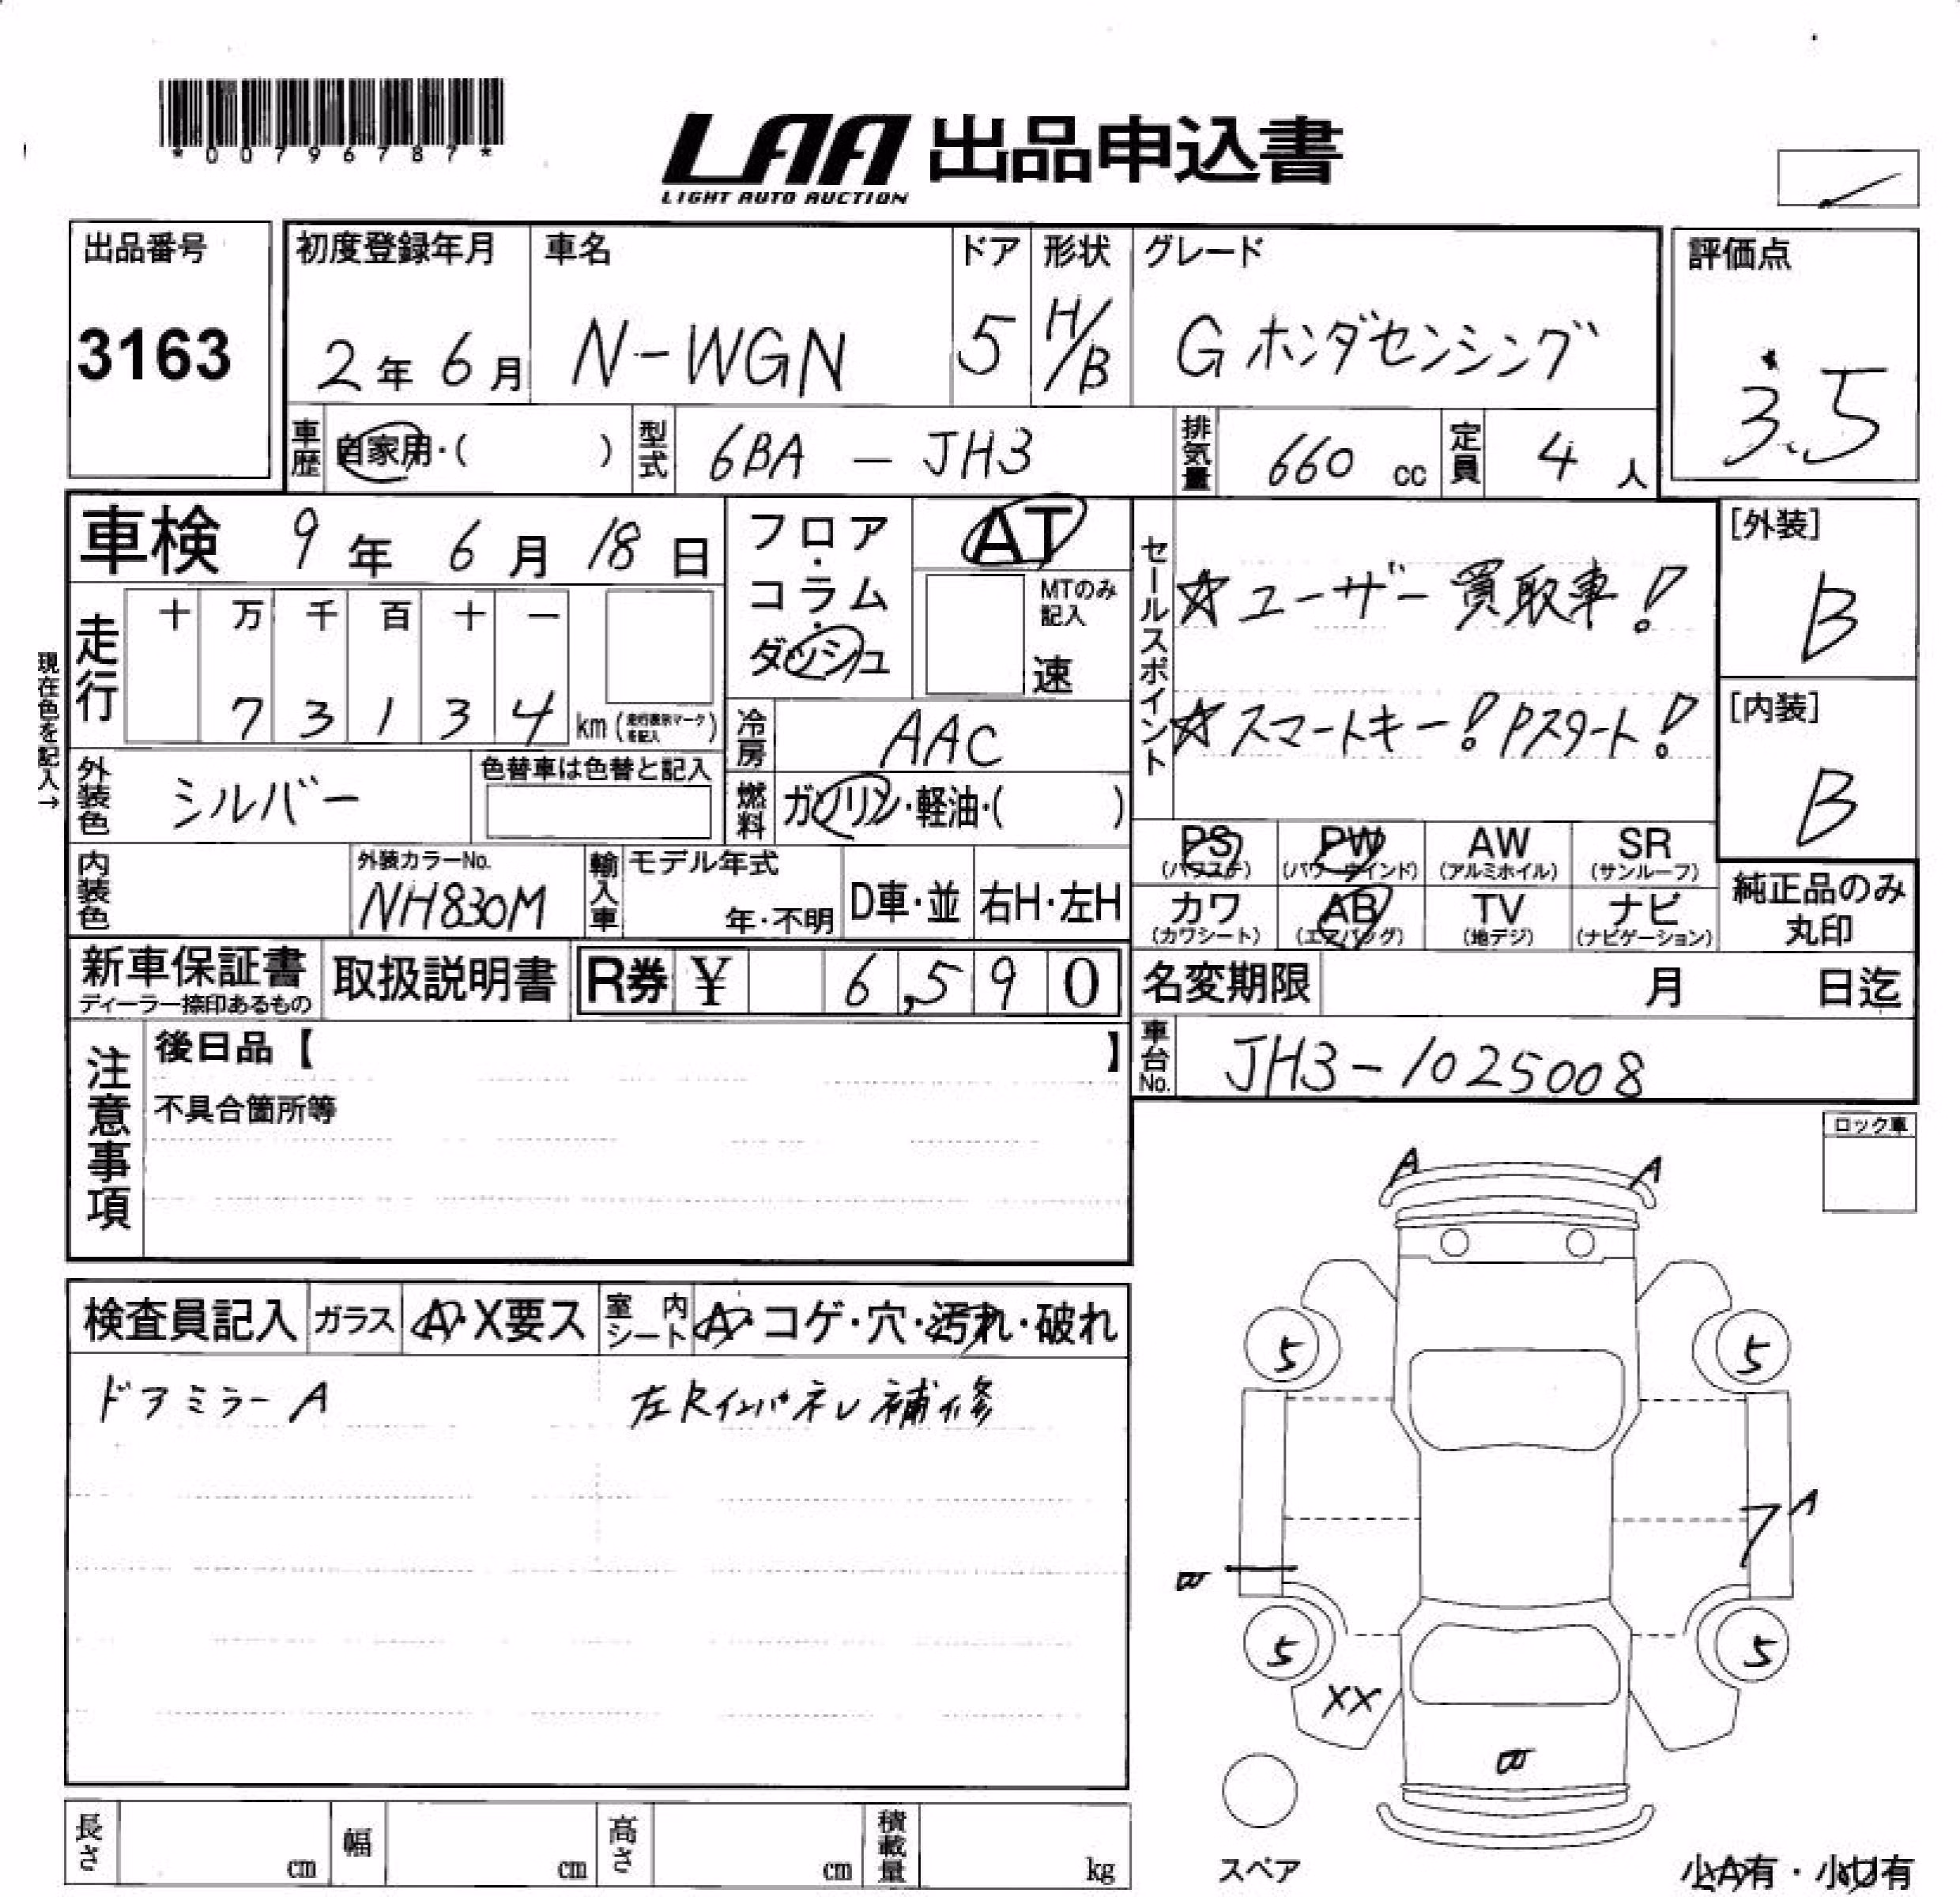 *00796787*
LAA 出品申込書
LIGHT AUTO AUCTION
出品番号
3163
初度登録年月
2年 6月
車名
N-WGN
ドア
5
形状
H/B
グレード
G ホンダセンシング
評価点
3.5
車歴
自家用・( )
型式
6BA - JH3
排気量
660 cc
定員
4 人
車検 9年 6月 18日
フロア・コラム・ダッシュ
AT
MTのみ記入
速
走行
十 万 千 百 十 一
7 3 1 3 4 km (走行表示マークを記入)
現在色を記入→
冷房
AAC
外装色
シルバー
色替車は色替と記入
燃料
ガソリン・軽油・( )
内装色
外装カラーNo.
NH830M
輸入車
モデル年式
年・不明
D車・並
右H・左H
セールスポイント
☆ユーザー買取車!
☆スマートキー! Pスタート!
[外装]
B
[内装]
B
PS (パワステ)
PW (パワーウインド)
AW (アルミホイル)
SR (サンルーフ)
カワ (カワシート)
AB (エアバッグ)
TV (地デジ)
ナビ (ナビゲーション)
純正品のみ丸印
新車保証書
ディーラー捺印あるもの
取扱説明書
R券 ¥ 6,590
名変期限 月 日迄
車台No.
JH3-1025008
注意事項
後日品【 】
不具合箇所等
ロック車
検査員記入
ガラス
A・X要ス
室内シート
A・コゲ・穴・汚れ・破れ
ドアミラーA
左Rインパネル補修
A A
5 5
A
7
B
5 5
XX
B
スペア
小A有・小U有
長さ cm
幅 cm
高さ cm
積載量 kg